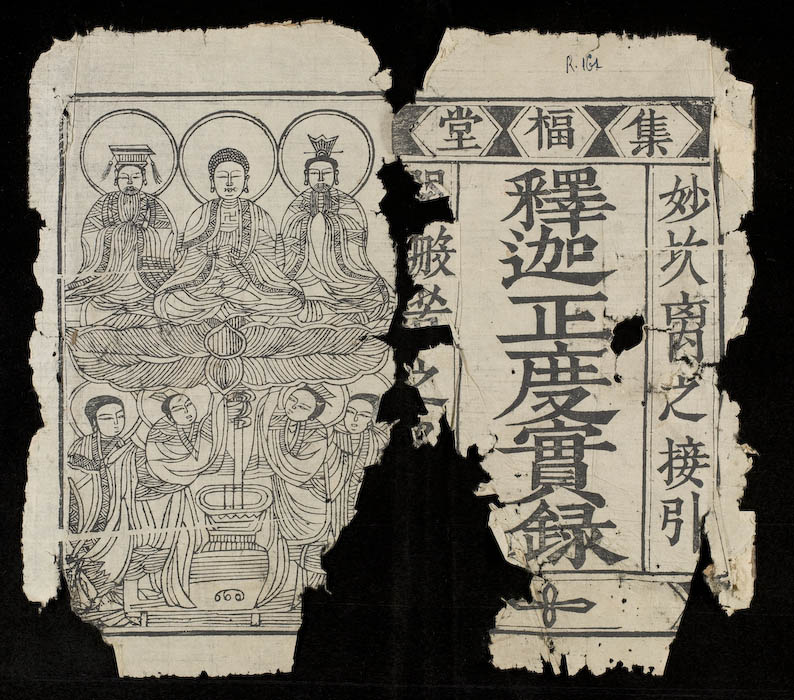 R.161
集福堂
妙坎离之接引
釋迦正度實録
般若之